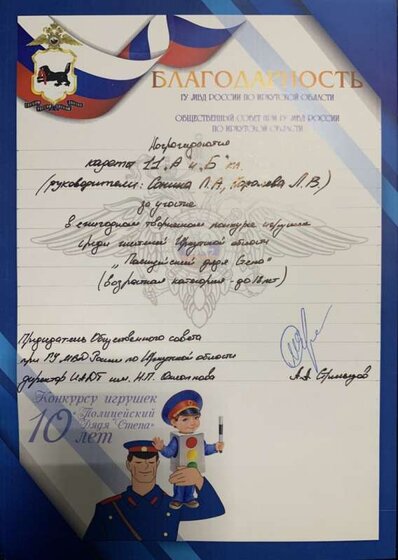 БЛАГОДАРНОСТЬ
ГУ МВД РОССИИ ПО ИРКУТСКОЙ ОБЛАСТИ
ОБЩЕСТВЕННЫЙ СОВЕТ ПРИ ГУ МВД РОССИИ
ПО ИРКУТСКОЙ ОБЛАСТИ
Награждаются
кадеты 11 "А и Б" кл.
(руководители: Сонина Л.А, Королева Л.В.)
за участие
в ежегодном творческом конкурсе игрушек
среди жителей Иркутской области
"Полицейский дядя Степа"
(возрастная категория - до 18 лет)
Председатель Общественного совета
при ГУ МВД России по Иркутской области
директор им. Н.П.
А.А.
Конкурсу игрушек
"Полицейский
Дядя Степа"
10 лет